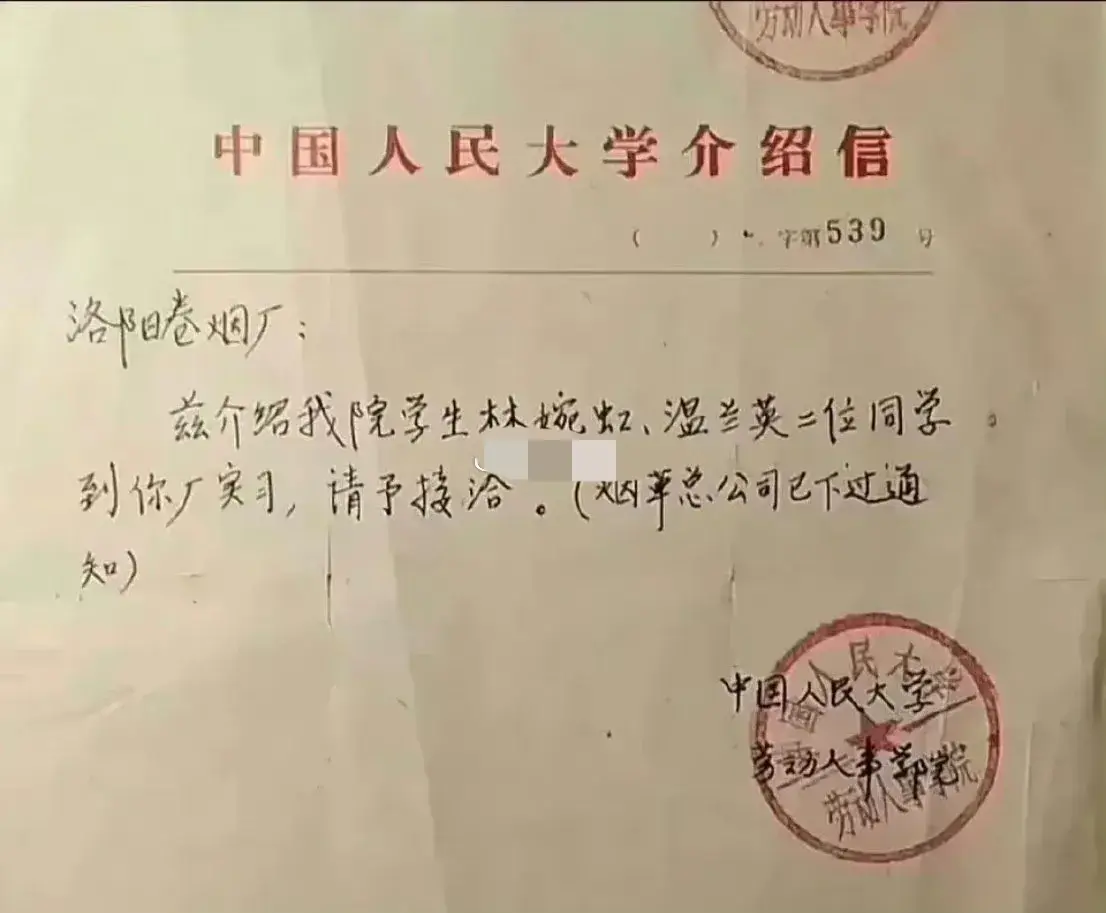 劳动人事学院
中国人民大学介绍信
（ ） 字第539号
洛阳卷烟厂：
兹介绍我院学生林婉虹、温兰英二位同学
到你厂实习，请予接洽。（烟草总公司已下过通
知）
中国人民大学
劳动人事学院
中国人民大学
劳动人事学院